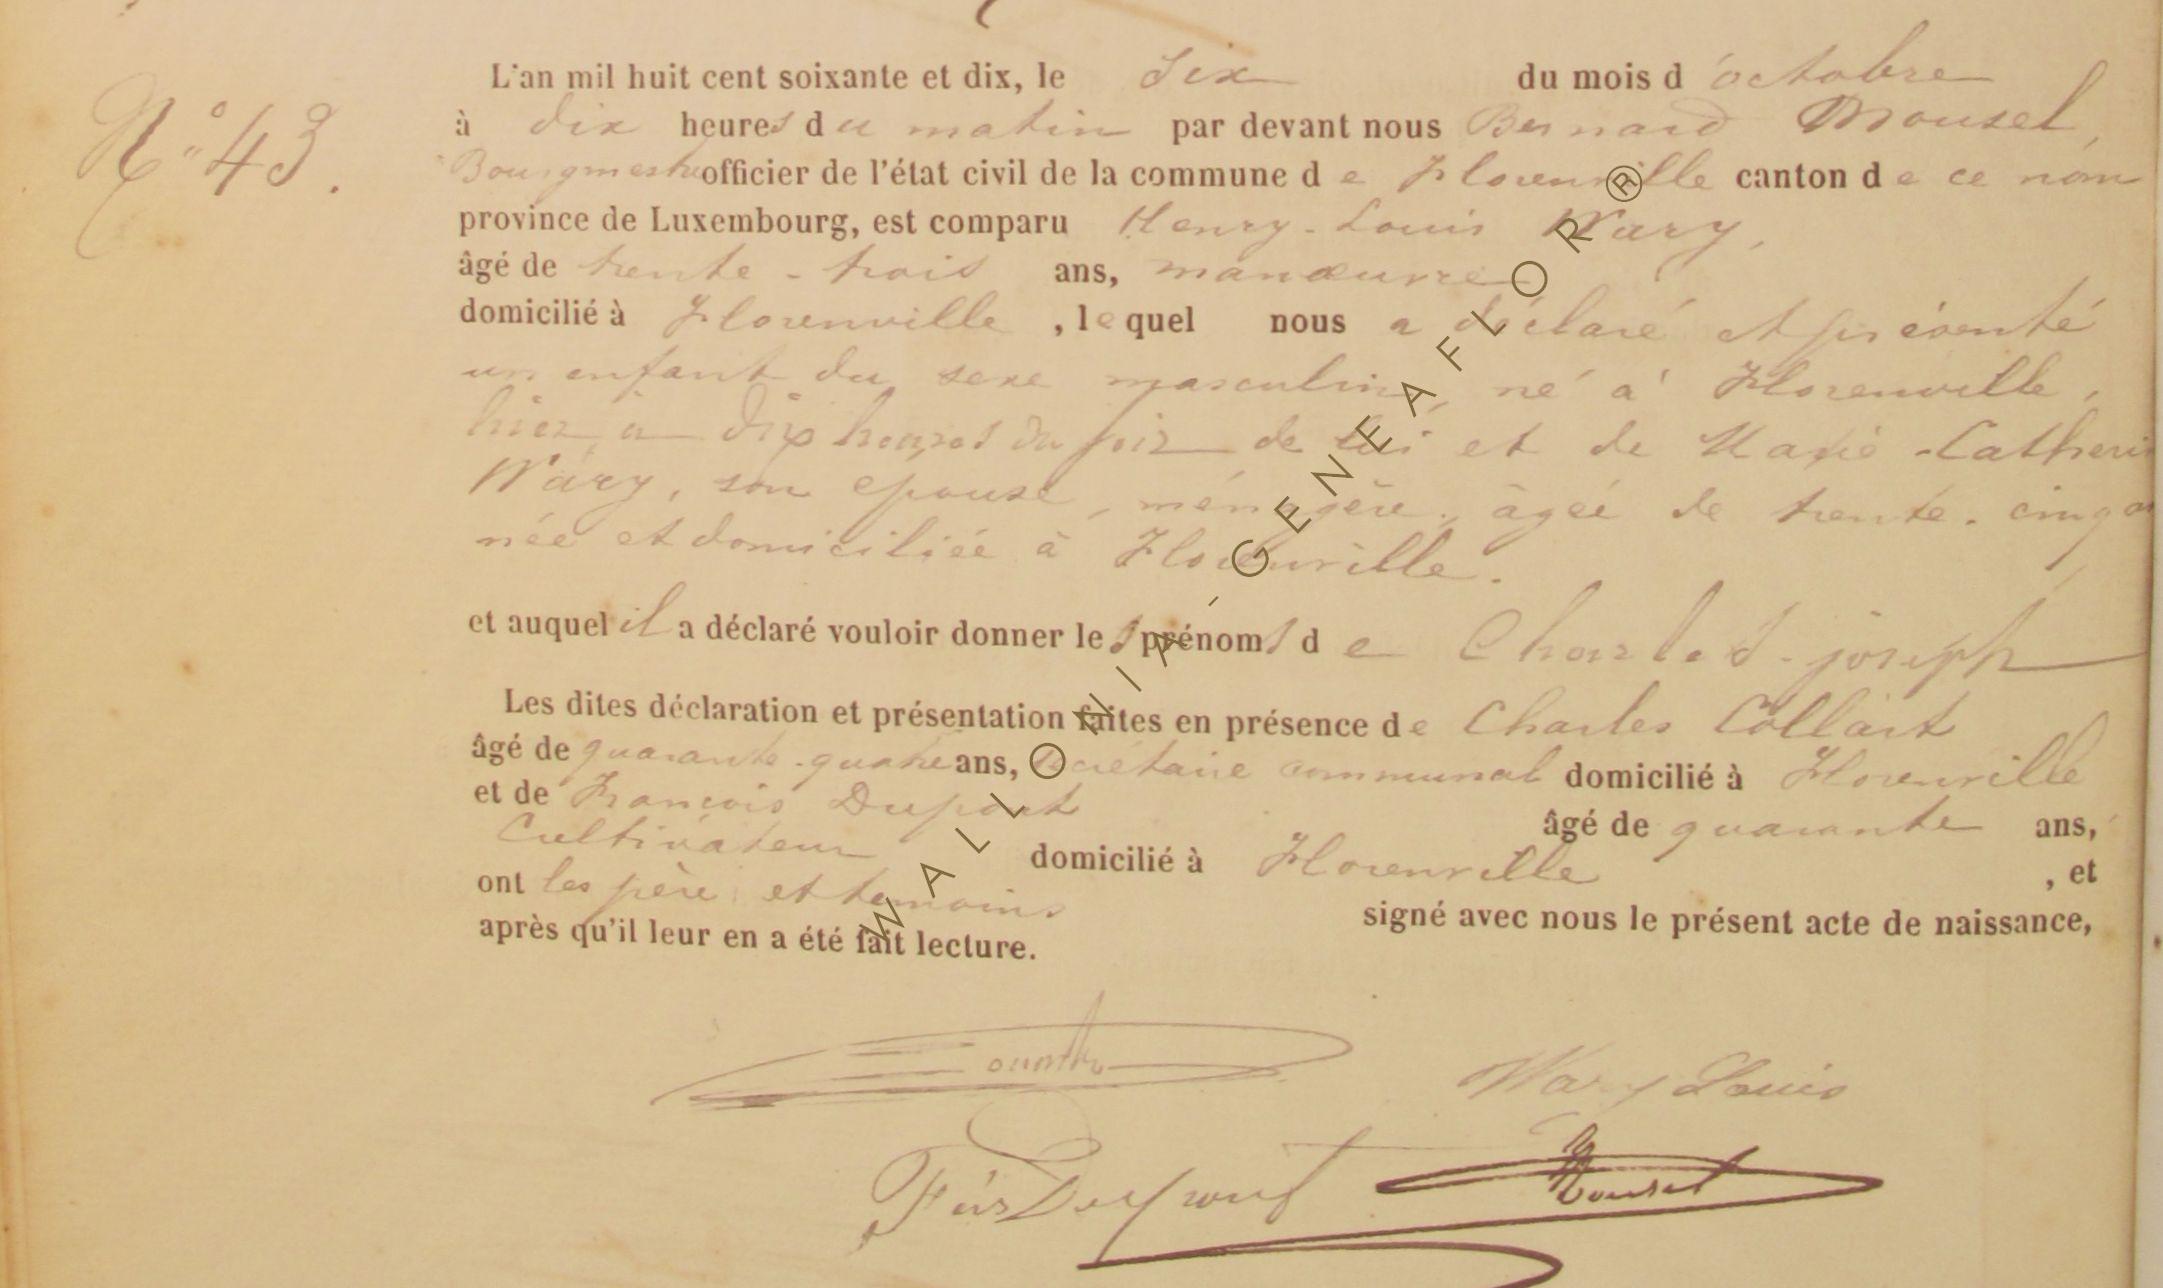 N° 43.
L'an mil huit cent soixante et dix, le six du mois d'octobre
à dix heures du matin par devant nous Bernard Mousel,
Bourgmestre officier de l'état civil de la commune de Florenville canton de ce nom
province de Luxembourg, est comparu Henry-Louis Wary,
âgé de trente-trois ans, manœuvre
domicilié à Florenville, lequel nous a déclaré et présenté
un enfant du sexe masculin, né à Florenville,
hier à dix heures du soir de lui et de Marie-Catherin
Wary, son épouse, ménagère, âgée de trente-cinq an
née et domiciliée à Florenville.
et auquel il a déclaré vouloir donner les prénoms de Charles-joseph
Les dites déclaration et présentation faites en présence de Charles Collart
âgé de quarante-quatre ans, secrétaire communal domicilié à Florenville
et de François Dupont âgé de quarante ans,
Cultivateur domicilié à Florenville, et
ont les père et temoins signé avec nous le présent acte de naissance,
après qu'il leur en a été fait lecture.
Wary Louis
Dupont Mousel
WALLONIA - GENEAFLOR®